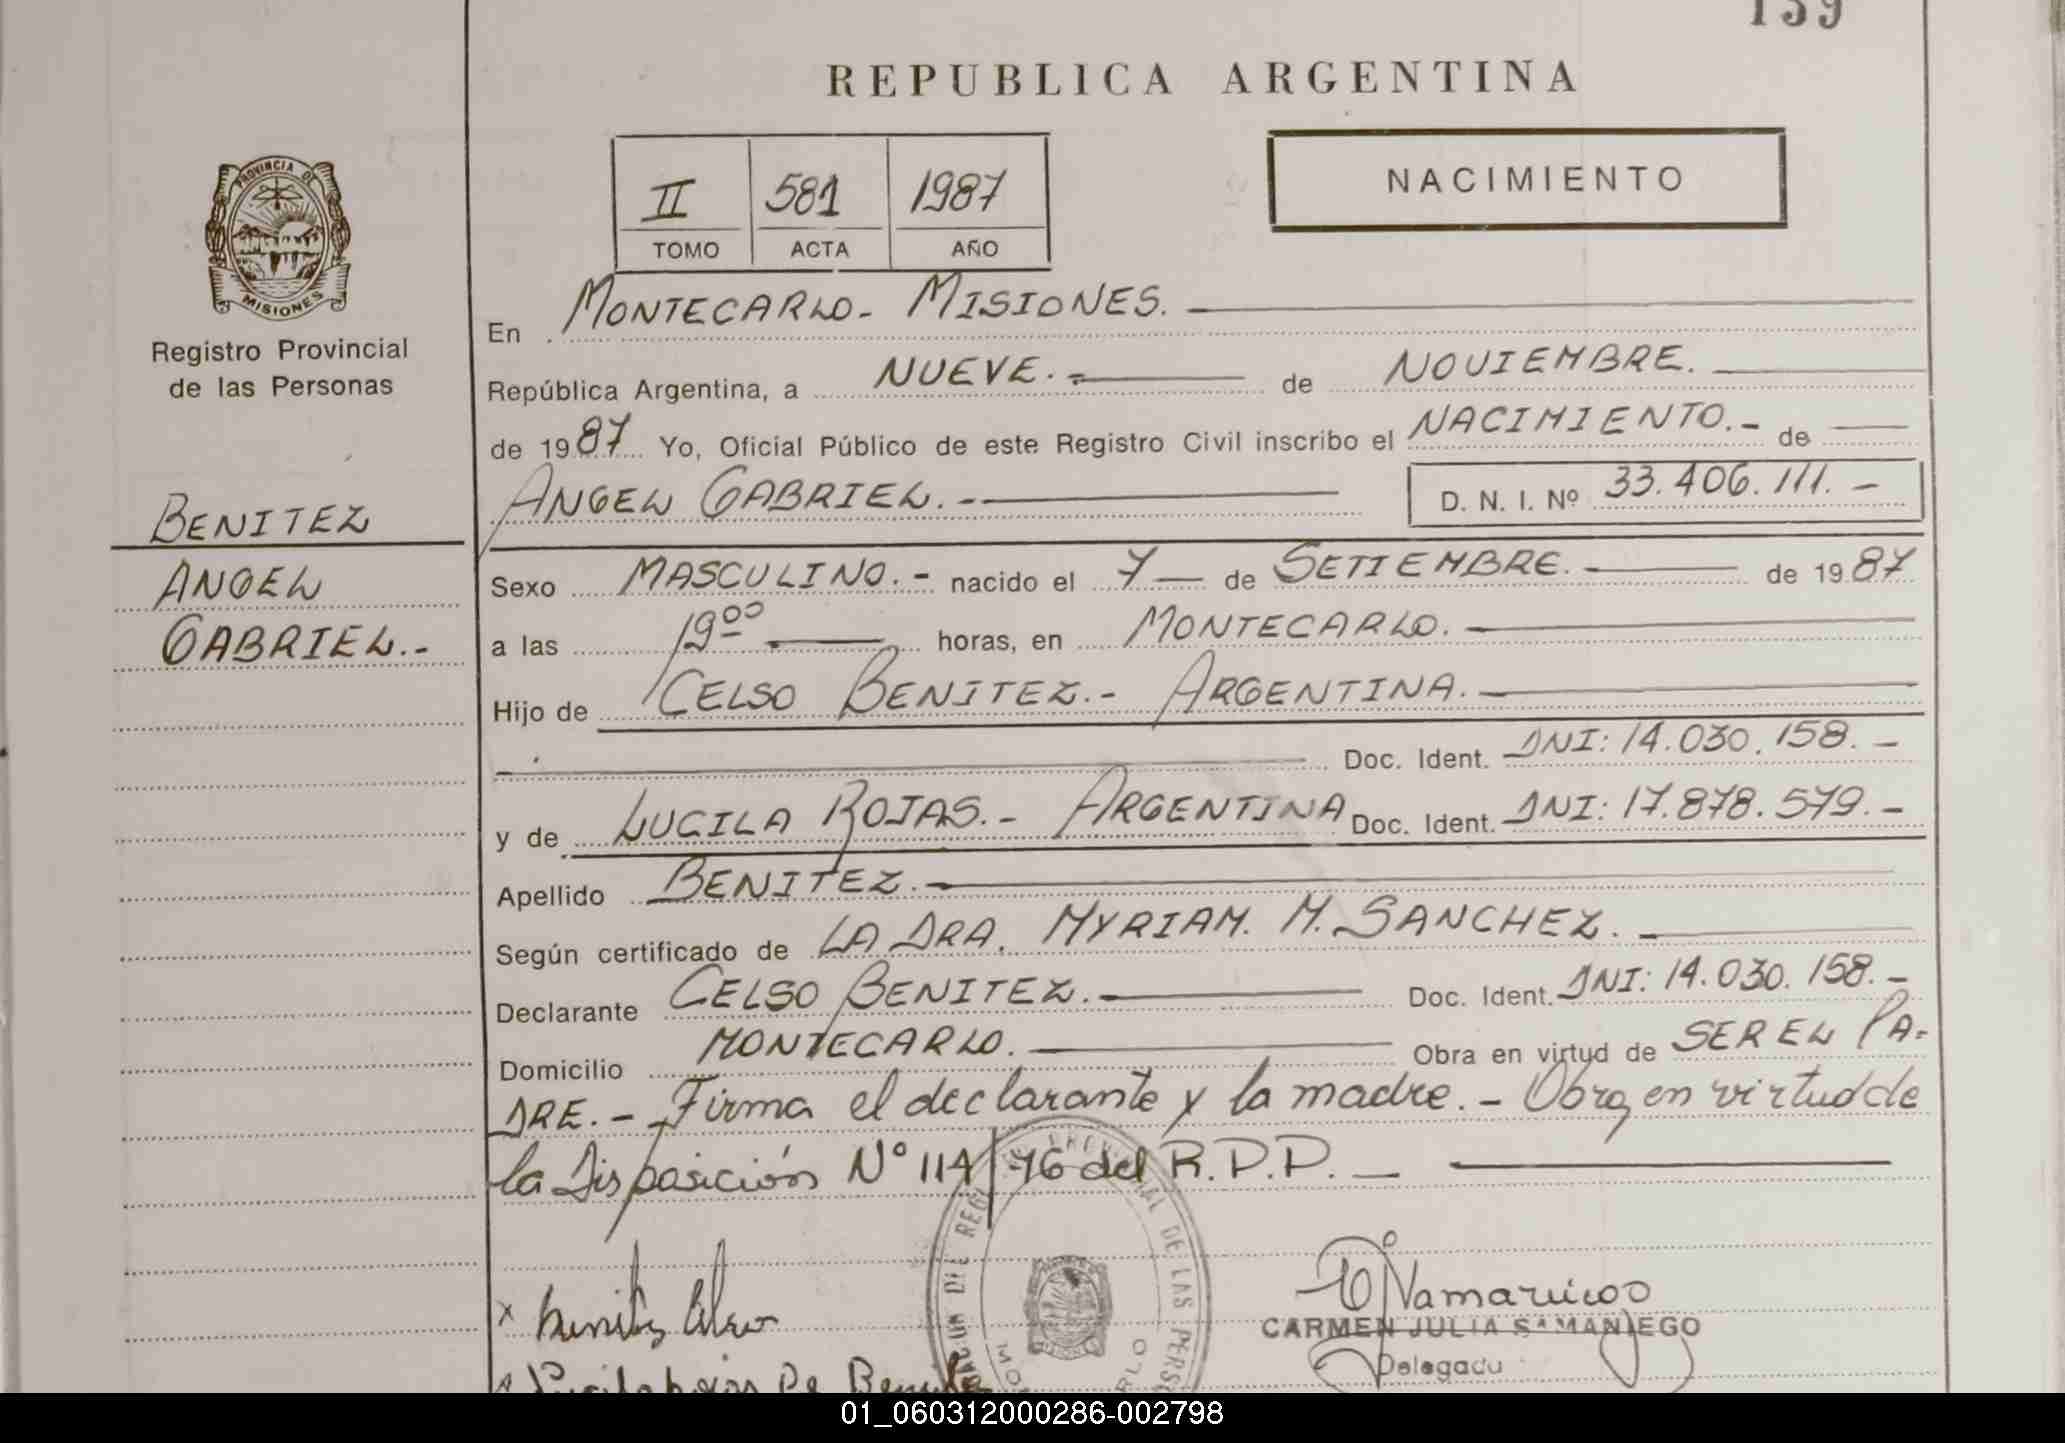 139
REPUBLICA ARGENTINA
PROVINCIA DE
MISIONES
II 581 1987
TOMO ACTA AÑO
NACIMIENTO
Registro Provincial
de las Personas
BENITEZ
ANGEL
GABRIEL.-
En MONTECARLO- MISIONES.
República Argentina, a NUEVE.- de NOVIEMBRE.
de 1987 Yo, Oficial Público de este Registro Civil inscribo el NACIMIENTO.- de
ANGEL GABRIEL.- D. N. I. Nº 33.406.111.-
Sexo MASCULINO.- nacido el 7 de SETIEMBRE. de 1987
a las 19⁰⁰ horas, en MONTECARLO.
Hijo de CELSO BENITEZ.- ARGENTINA.
Doc. Ident. DNI: 14.030.158.-
y de LUCILA ROJAS.- ARGENTINA Doc. Ident. DNI: 17.878.579.-
Apellido BENITEZ.-
Según certificado de LA DRA. MYRIAM. M. SANCHEZ.
Declarante CELSO BENITEZ.- Doc. Ident. DNI: 14.030.158.-
Domicilio MONTECARLO. Obra en virtud de SER EL PA-
DRE.- Firma el declarante y la madre.- Obra en virtud de
la Disposición Nº 114/76 del R.P.P.
x Benitez Celso
DEL REGISTRO PROVINCIAL DE LAS PERSO
CARMEN JULIA SAMANIEGO
Delegada
De Benitez
01_060312000286-002798